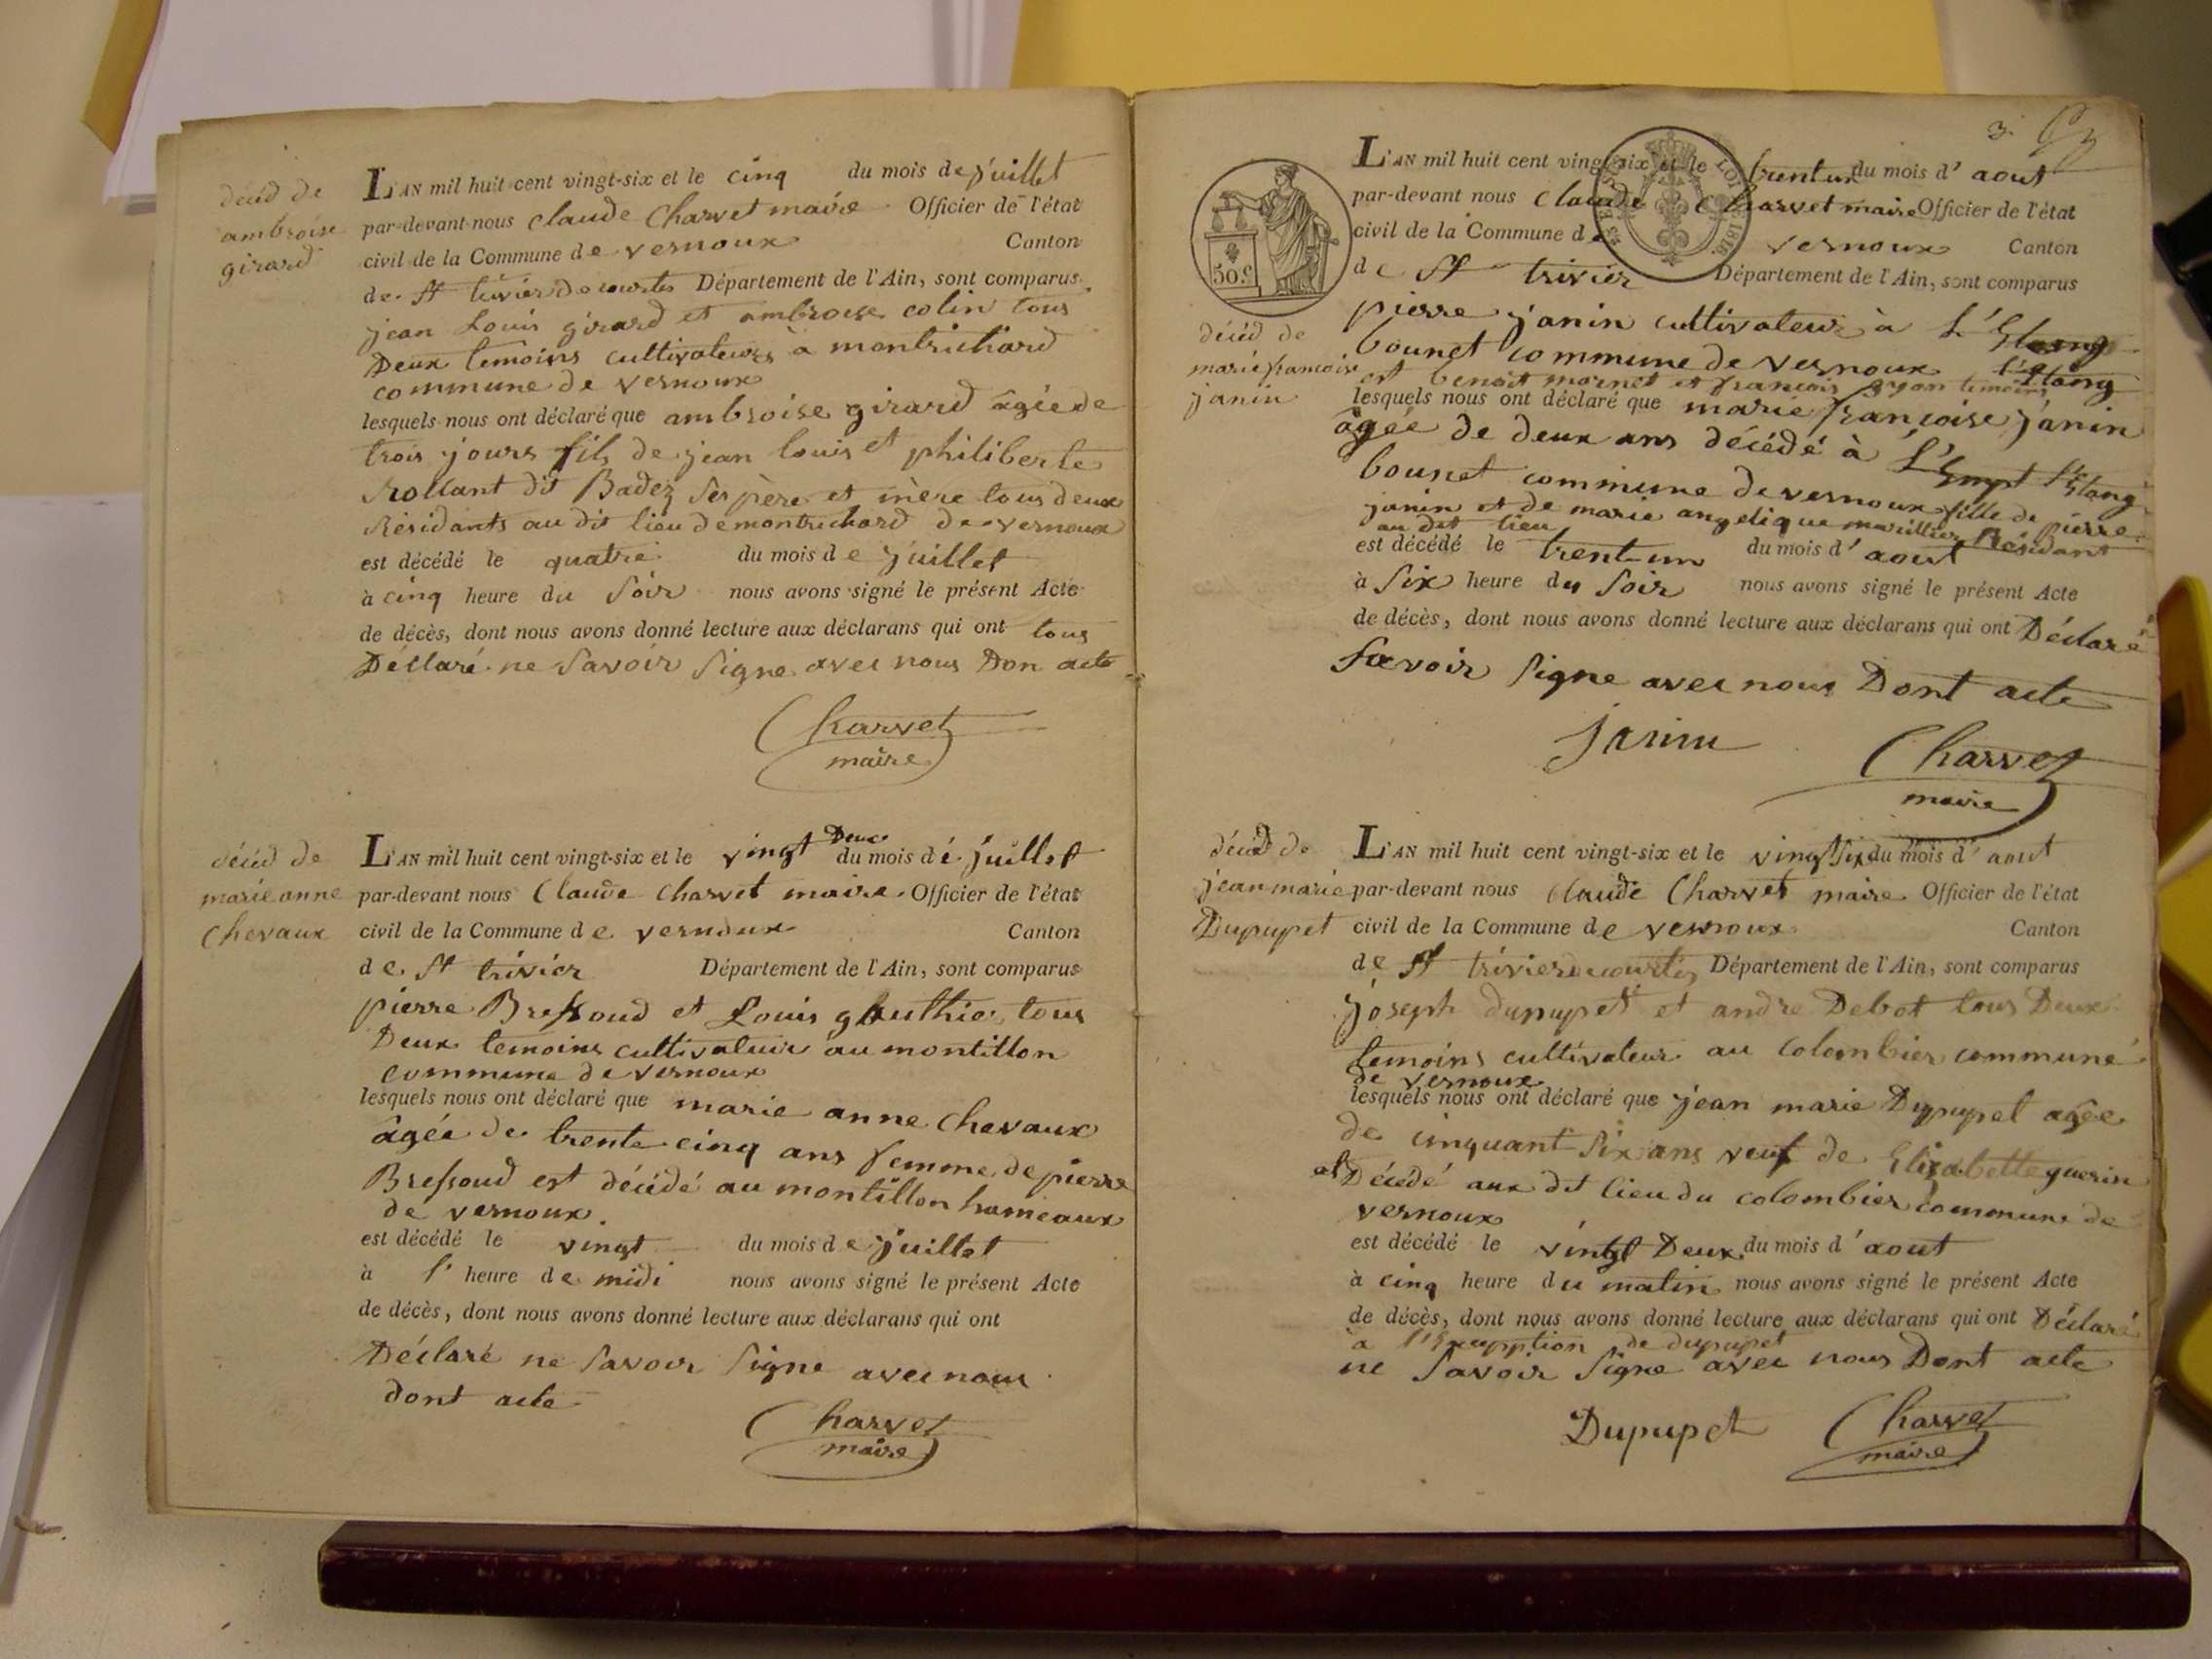 décéd de
ambroise
girard
L'AN mil huit cent vingt-six et le cinq du mois de juillet
par-devant nous claude Charvet maire Officier de l'état
civil de la Commune de vernoux Canton
de St trivier de courtes Département de l'Ain, sont comparus
jean Louis girard et ambroise colin tous
Deux temoins cultivateurs à montrichard
commune de vernoux
lesquels nous ont déclaré que ambroise girard âgée de
trois jours fils de jean louis et philiberte
Rollant dit Badez ses père et mère tous deux
Résidants au dit lieu de montrichard de vernoux
est décédé le quatre du mois de juillet
à cinq heure du soir nous avons signé le présent Acte
de décès, dont nous avons donné lecture aux déclarans qui ont tous
Déclaré ne savoir signe avec nous Don acte
Charvet
maire
décéd de
marie anne
Chevaux
L'AN mil huit cent vingt-six et le vingt Deux du mois de juillet
par-devant nous Claude Charvet maire Officier de l'état
civil de la Commune de vernoux Canton
de St trivier Département de l'Ain, sont comparus
pierre Bressoud et Louis gauthier tous
Deux temoins cultivateur au montillon
commune de vernoux
lesquels nous ont déclaré que marie anne Chevaux
âgée de trente cinq ans femme de pierre
Bressoud est décédé au montillon hameaux
de vernoux
est décédé le vingt du mois de juillet
à l' heure de midi nous avons signé le présent Acte
de décès, dont nous avons donné lecture aux déclarans qui ont
Déclaré ne savoir signe avec nous
dont acte
Charvet
maire
3.
50 c
LOI 1816
décéd de
marie francoise
janin
L'AN mil huit cent vingt-six et le trentun du mois d' aout
par-devant nous claude Charvet maire Officier de l'état
civil de la Commune de vernoux Canton
de St trivier Département de l'Ain, sont comparus
pierre janin cultivateur à L'Etang
bounet commune de vernoux l'Etang
et benoit mornet et francois temoins
lesquels nous ont déclaré que marie francoise janin
âgée de deux ans décédé à l'Etang
bounet commune de vernoux fille de pierre
janin et de marie angelique marillier Résidant
au dit lieu
est décédé le trent-un du mois d' aout
à six heure du soir nous avons signé le présent Acte
de décès, dont nous avons donné lecture aux déclarans qui ont Déclaré
savoir signe avec nous Dont acte
janin Charvet
maire
décéd de
jean marie
Dupupet
L'AN mil huit cent vingt-six et le vingt six du mois d' aout
par-devant nous claude Charvet maire Officier de l'état
civil de la Commune de vernoux Canton
de St trivier de courtes Département de l'Ain, sont comparus
joseph dupupet et andre Debot tous Deux
temoins cultivateur au colombier commune
de vernoux
lesquels nous ont déclaré que jean marie Dupupet agée
de cinquant six ans veuf de Elizabette guerin
et Décédé aux dit lieu du colombier commune de
vernoux
est décédé le vingt Deux du mois d' aout
à cinq heure du matin nous avons signé le présent Acte
de décès, dont nous avons donné lecture aux déclarans qui ont Déclaré
a l'Exepption de dupupet
ne savoir signe avec nous Dont acte
Dupupet Charvet
maire